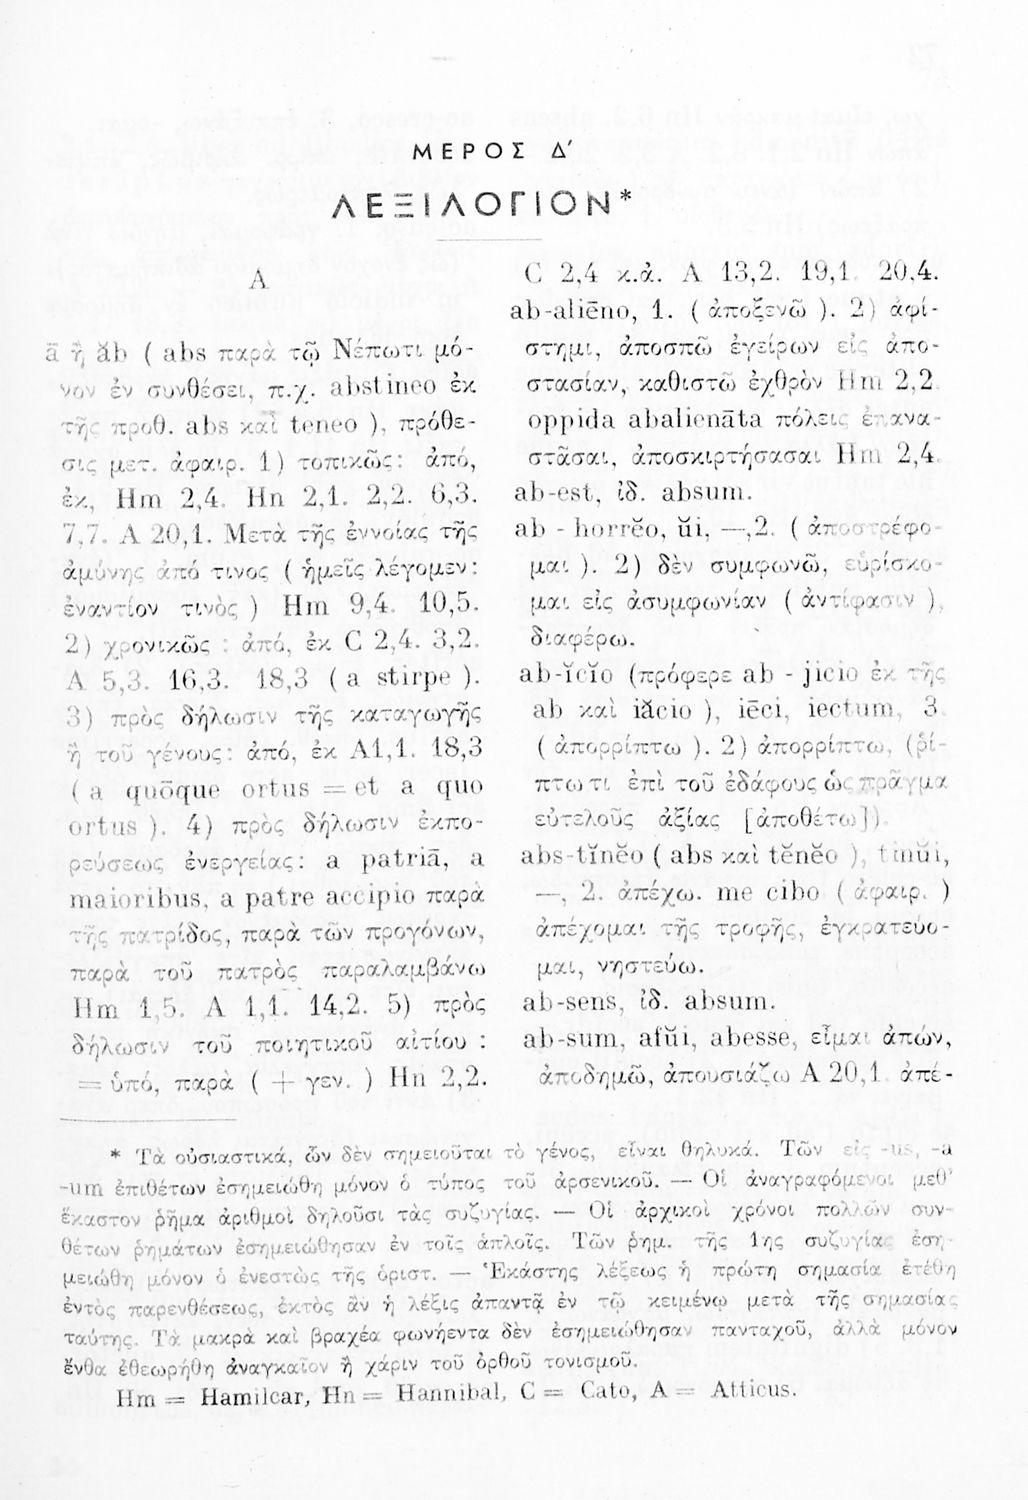 ΜΕΡΟΣ Δ΄
ΛΕΞΙΛΟΓΙΟΝ*
Α
ā ἢ ăb ( abs παρὰ τῷ Νέπωτι μό-
νον ἐν συνθέσει, π.χ. abstineo ἐκ
τῆς προθ. abs καὶ teneo ), πρόθε-
σις μετ. ἀφαιρ. 1) τοπικῶς: ἀπό,
ἐκ, Hm 2,4. Hn 2,1. 2,2. 6,3.
7,7. A 20,1. Μετὰ τῆς ἐννοίας τῆς
ἀμύνης ἀπό τινος ( ἡμεῖς λέγομεν:
ἐναντίον τινὸς ) Hm 9,4. 10,5.
2) χρονικῶς : ἀπό, ἐκ C 2,4. 3,2.
A 5,3. 16,3. 18,3 ( a stirpe ).
3) πρὸς δήλωσιν τῆς καταγωγῆς
ἢ τοῦ γένους: ἀπό, ἐκ A1,1. 18,3
( a quōque ortus = et a quo
ortus ). 4) πρὸς δήλωσιν ἐκπο-
ρεύσεως ἐνεργείας: a patriā, a
maioribus, a patre accipio παρὰ
τῆς πατρίδος, παρὰ τῶν προγόνων,
παρὰ τοῦ πατρὸς παραλαμβάνω
Hm 1,5. A 1,1. 14,2. 5) πρὸς
δήλωσιν τοῦ ποιητικοῦ αἰτίου :
= ὑπό, παρὰ ( + γεν. ) Hn 2,2.
C 2,4 κ.ἀ. A 13,2. 19,1. 20,4.
ab-aliēno, 1. ( ἀποξενῶ ). 2) ἀφί-
στημι, ἀποσπῶ ἐγείρων εἰς ἀπο-
στασίαν, καθιστῶ ἐχθρὸν Hm 2,2.
oppida abalienāta πόλεις ἐπανα-
στᾶσαι, ἀποσκιρτήσασαι Hm 2,4.
ab-est, ἰδ. absum.
ab - horrĕo, ŭi, —,2. ( ἀποστρέφο-
μαι ). 2) δὲν συμφωνῶ, εὑρίσκο-
μαι εἰς ἀσυμφωνίαν ( ἀντίφασιν ),
διαφέρω.
ab-ĭcĭo (πρόφερε ab - jicio ἐκ τῆς
ab καὶ iăcio ), iēci, iectum, 3.
( ἀπορρίπτω ). 2) ἀπορρίπτω, (ρί-
πτω τι ἐπὶ τοῦ ἐδάφους ὡς πρᾶγμα
εὐτελοῦς ἀξίας [ἀποθέτω]).
abs-tĭnĕo ( abs καὶ tĕnĕo ), tinŭi,
—, 2. ἀπέχω. me cibo ( ἀφαιρ. )
ἀπέχομαι τῆς τροφῆς, ἐγκρατεύο-
μαι, νηστεύω.
ab-sens, ἰδ. absum.
ab-sum, afŭi, abesse, εἶμαι ἀπών,
ἀποδημῶ, ἀπουσιάζω A 20,1. ἀπέ-
* Τὰ οὐσιαστικά, ὧν δὲν σημειοῦται τὸ γένος, εἶναι θηλυκά. Τῶν εἰς -us, -a
-um ἐπιθέτων ἐσημειώθη μόνον ὁ τύπος τοῦ ἀρσενικοῦ. — Οἱ ἀναγραφόμενοι μεθ'
ἕκαστον ῥῆμα ἀριθμοὶ δηλοῦσι τὰς συζυγίας. — Οἱ ἀρχικοὶ χρόνοι πολλῶν συν-
θέτων ῥημάτων ἐσημειώθησαν ἐν τοῖς ἁπλοῖς. Τῶν ῥημ. τῆς 1ης συζυγίας ἐση-
μειώθη μόνον ὁ ἐνεστὼς τῆς ὁριστ. — Ἑκάστης λέξεως ἡ πρώτη σημασία ἐτέθη
ἐντὸς παρενθέσεως, ἐκτὸς ἂν ἡ λέξις ἀπαντᾷ ἐν τῷ κειμένῳ μετὰ τῆς σημασίας
ταύτης. Τὰ μακρὰ καὶ βραχέα φωνήεντα δὲν ἐσημειώθησαν πανταχοῦ, ἀλλὰ μόνον
ἔνθα ἐθεωρήθη ἀναγκαῖον ἢ χάριν τοῦ ὀρθοῦ τονισμοῦ.
Hm = Hamilcar, Hn = Hannibal, C = Cato, A = Atticus.